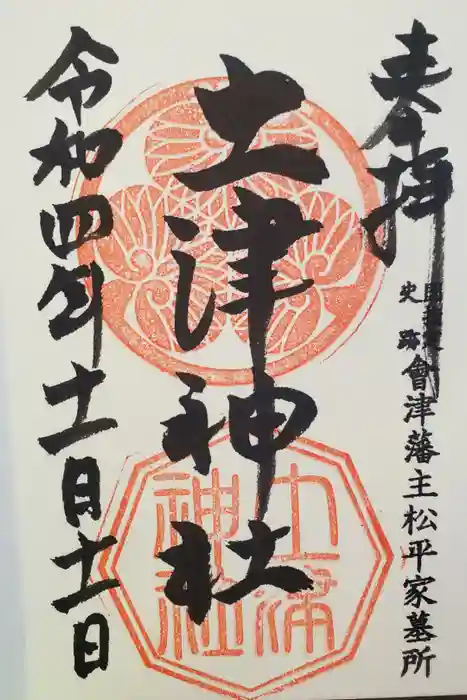 奉拝
史跡
會津藩主松平家墓所
土津神社
土津
神社
令和四年十一月十一日